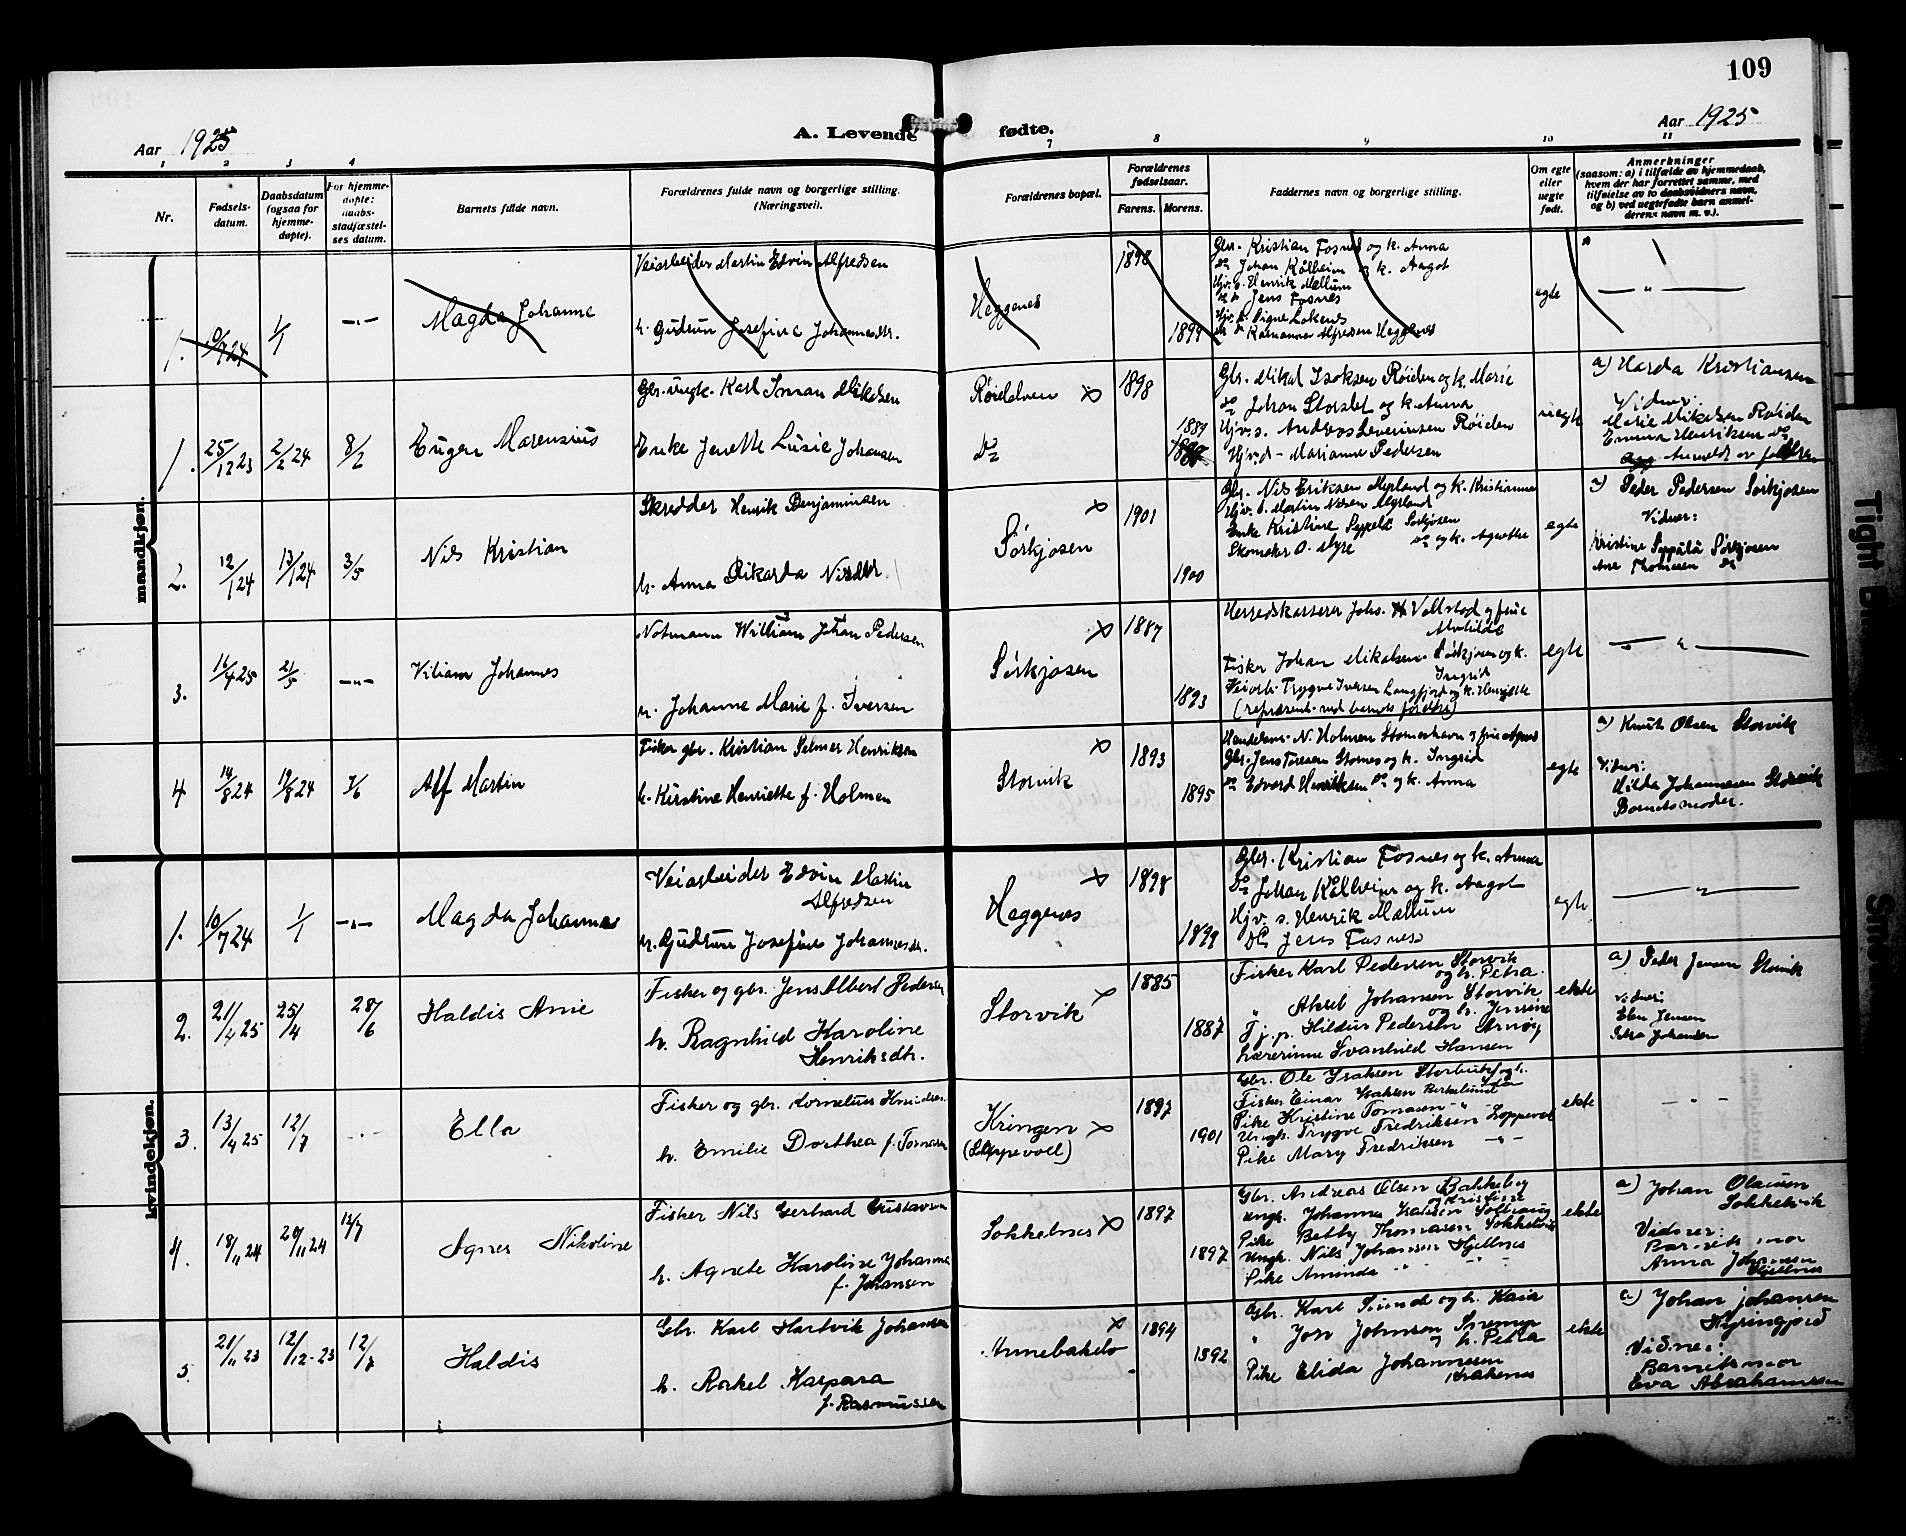 109
Aar 1925
A. Levende fødte.
Aar 1925
1 2 3 4 7 8 9 10 11
Nr.
Fødsels-
datum.
Daabsdatum
(ogsaa for
hjemme-
døpte).
For hjemme-
døpte:
daabs-
stadfæstel-
ses datum.
Barnets fulde navn.
Forældrenes fulde navn og borgerlige stilling.
(Næringsvei).
Forældrenes bopæl.
Forældrenes
fødselsaar.
Farens. Morens.
Faddernes navn og borgerlige stilling.
Om egte
eller
uegte
født.
Anmerkninger
(saasom: a) i tilfælde av hjemmedaab,
hvem der har forrettet samme, med
tilføielse av to daabsvidners navn,
og b) ved uegtefødte barn anmel-
derens navn m. v.).
mandkjøn.
1. 1/1 —"— Magda Johanne
Veiarbeider Martin Edvin Alfredsen
h. Gudrun Josefine Johannesdtr.
Heggenes
1898
1899
Gbr. Kristian Fosnes og k. Anna
do Johan Kålheim og k. Aagot
Hjv. s. Henrik Mællum
do Jens Fosnes
egte
— " —
1. 25/12 23 2/2 24 8/2 Eugen Marensius
Gbr. ungk. Karl Johan Mikalsen
Enke Jenette Lusie Johansen
Røieldven x
do
1898
1889
Gbr. Mikal Isaksen Røieldven og k. Marie
do Johan Storslet og k. Anna
Hjv. s. Andreas Severinsen Røielen
Hjv. d - Marianne Pedersen
uegte
a) Harda Kristiansen
Vidner:
Marie Mikalsen Røielen
Emma Henriksen do
Anmeldt av faldren
2. 12/1 24 13/1 24 3/5 Nils Kristian
Skrædder Henrik Benjaminsen
h. Anna Rikarda Nilsdtr.
Sørkjosen x
1901
1900
Gbr. Nils Eriksen Myrland og k. Kristianna
Hjv. s. Martin Nilsen Myrland
Enke Kristine Seppälä Sørkjosen
Skomaker O. Myre do og k. Agnethe
egte
a) Peder Pedersen Sørkjosen
Vidner:
Kristine Seppälä Sørkjosen
Ane Thomesen do
3. 16/4 25 21/5 —"— Viliam Johannes
Notmann William Johan Pedersen
h. Johanne Marie f. Iversen
Sørkjosen x
1887
1893
Herredskasserer Johs. H Vallstad og frue
Mathilde
Fisker Johan Mikalsen Sørkjosen og k.
Ingrid
Veiarb. Trygve Iversen Langfjord og k. Henriette
(repræsent. ved barnets forældre)
egte
— " —
4 14/8 24 19/8 24 7/6 Alf Martin
Fisker gbr. Kristian Selmer Henriksen
h. Kirstine Henriette f. Holmen
Storvik x
1893
1895
Handelsm. N. Holmen Stomershavn og frue Agnes
Gbr. Jens Toresen Stornes og k. Ingrid
do Edvard Henriksen do og k. Anna
egte
a) Knut Olsen Storvik
Vidner:
Hilda Johannesen Storvik
Barnets moder.
kvindekjøn.
1. 10/7 24 1/1 —"— Magda Johanna
Veiarbeider Edvin Martin
Alfredsen
h. Gudrun Josefine Johannesdr.
Heggenes x
1898
1899
Gbr. Kristian Fosnes og k. Anna
do Johan Kålheim og k. Aagot
Hjv. s. Henrik Mællum
do Jens Fosnes
egte
— " —
2. 21/4 25 25/4 28/6 Haldis Anie
Fisker og gbr. Jens Albert Pedersen
h. Ragnhild Karoline
Henriksdtr.
Storvik x
1885
1887
Fisker Karl Pedersen Storvik
og h. Petra
" Aksel Johansen Storvik
og h. Jensine
Tj. p. Hildur Pedersen Arnøy
Lærerinne Svanhild Hansen
ekte
a) Peder Jensen Storvik
Vidner:
Elen Jensen
Petra Johansen
3. 13/4 25 12/7 - " - Ella
Fisker og gbr. Kornelius Knudsen
h. Emilie Dorthea f. Tomasen
Kringen x
(Loppevoll)
1897
1901
Gbr. Ole Isaksen Storbukt og h.
Fisker Einar Isaksen Birkelund
Pike Kristine Tomasen "
Ungk. Trygve Fredriksen Loppevol
Pike Mary Fredriksen - " -
ekte
- " -
4. 18/11 24 20/11 24 12/7 Agnes Nikoline
Fisker Nils Gerhard Gustavsen
h. Agnete Karoline Johanne
f. Johansen
Sokkelnes x
1897
1897
Gbr. Andreas Olsen Bakkeby
og Kristine
Ungk. Johannes Isaksen Solhaug
Pike Betty Thomasen Sokkelvik
Ungk. Nils Johansen Hjellnes
Pike Aminda " "
ekte
a) Johan Olausen
Sokkelvik
Vidner:
Barnets mor
Anna Johansen
Hjellnes
5. 21/11 23 12/12-23 12/7 Haldis
Gbr. Karl Hartvik Johansen
h. Rakel Kaspara
f. Rasmussen
Annebakelv x
1894
1892
Gbr. Karl Sund og h. Kaia
" Jon Johnsen
og h. Petra
Pike Elida Johannesen
Krakenes
ekte
a) Johan Johansen
Vidner:
Barnets mor
Eva Abrahamsen
Tight Bi